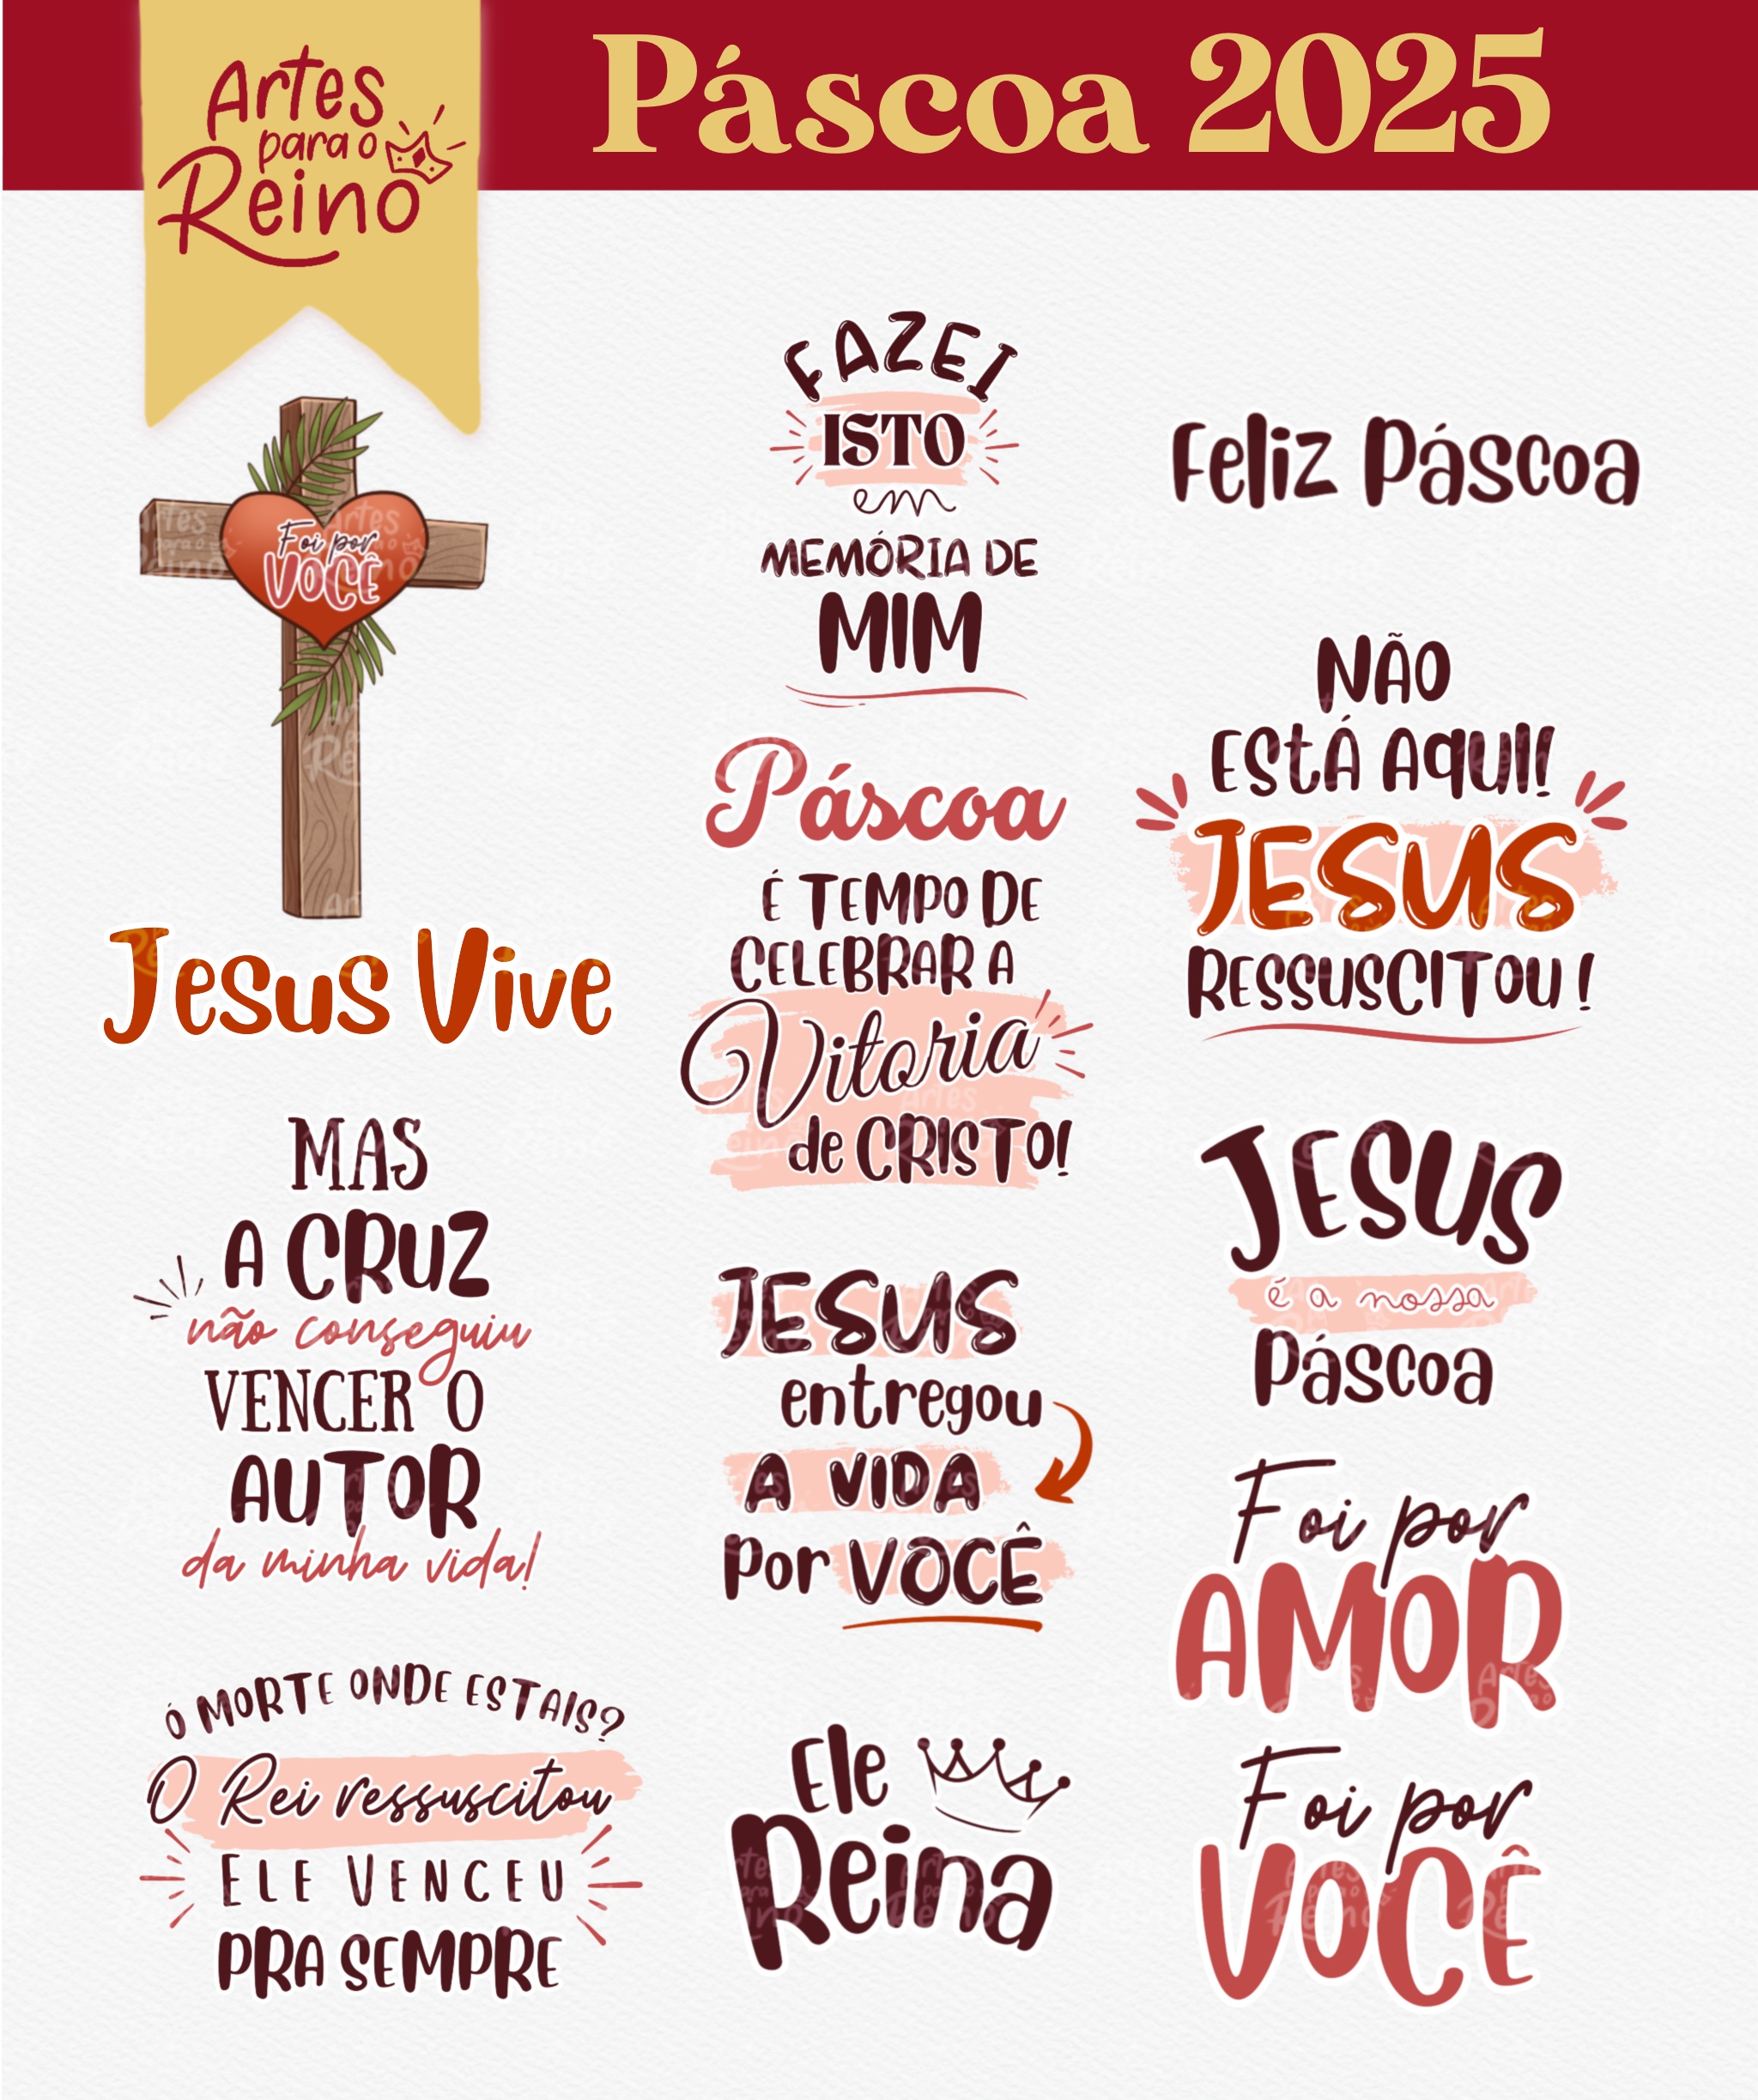 Artes
para o
Reino
Páscoa 2025
Foi por
VOCÊ
Jesus Vive
MAS
A CRUZ
não conseguiu
VENCER O
AUTOR
da minha vida!
Ó MORTE ONDE ESTAIS?
O Rei ressuscitou
ELE VENCEU
PRA SEMPRE
FAZEI
ISTO
em
MEMÓRIA DE
MIM
Páscoa
É TEMPO DE
CELEBRAR A
Vitoria
de CRISTO!
JESUS
entregou
A VIDA
Por VOCÊ
Ele
Reina
Feliz Páscoa
NÃO
ESTÁ AQUI!
JESUS
RESSUSCITOU!
JESUS
é a nossa
Páscoa
Foi por
AMOR
Foi por
VOCÊ